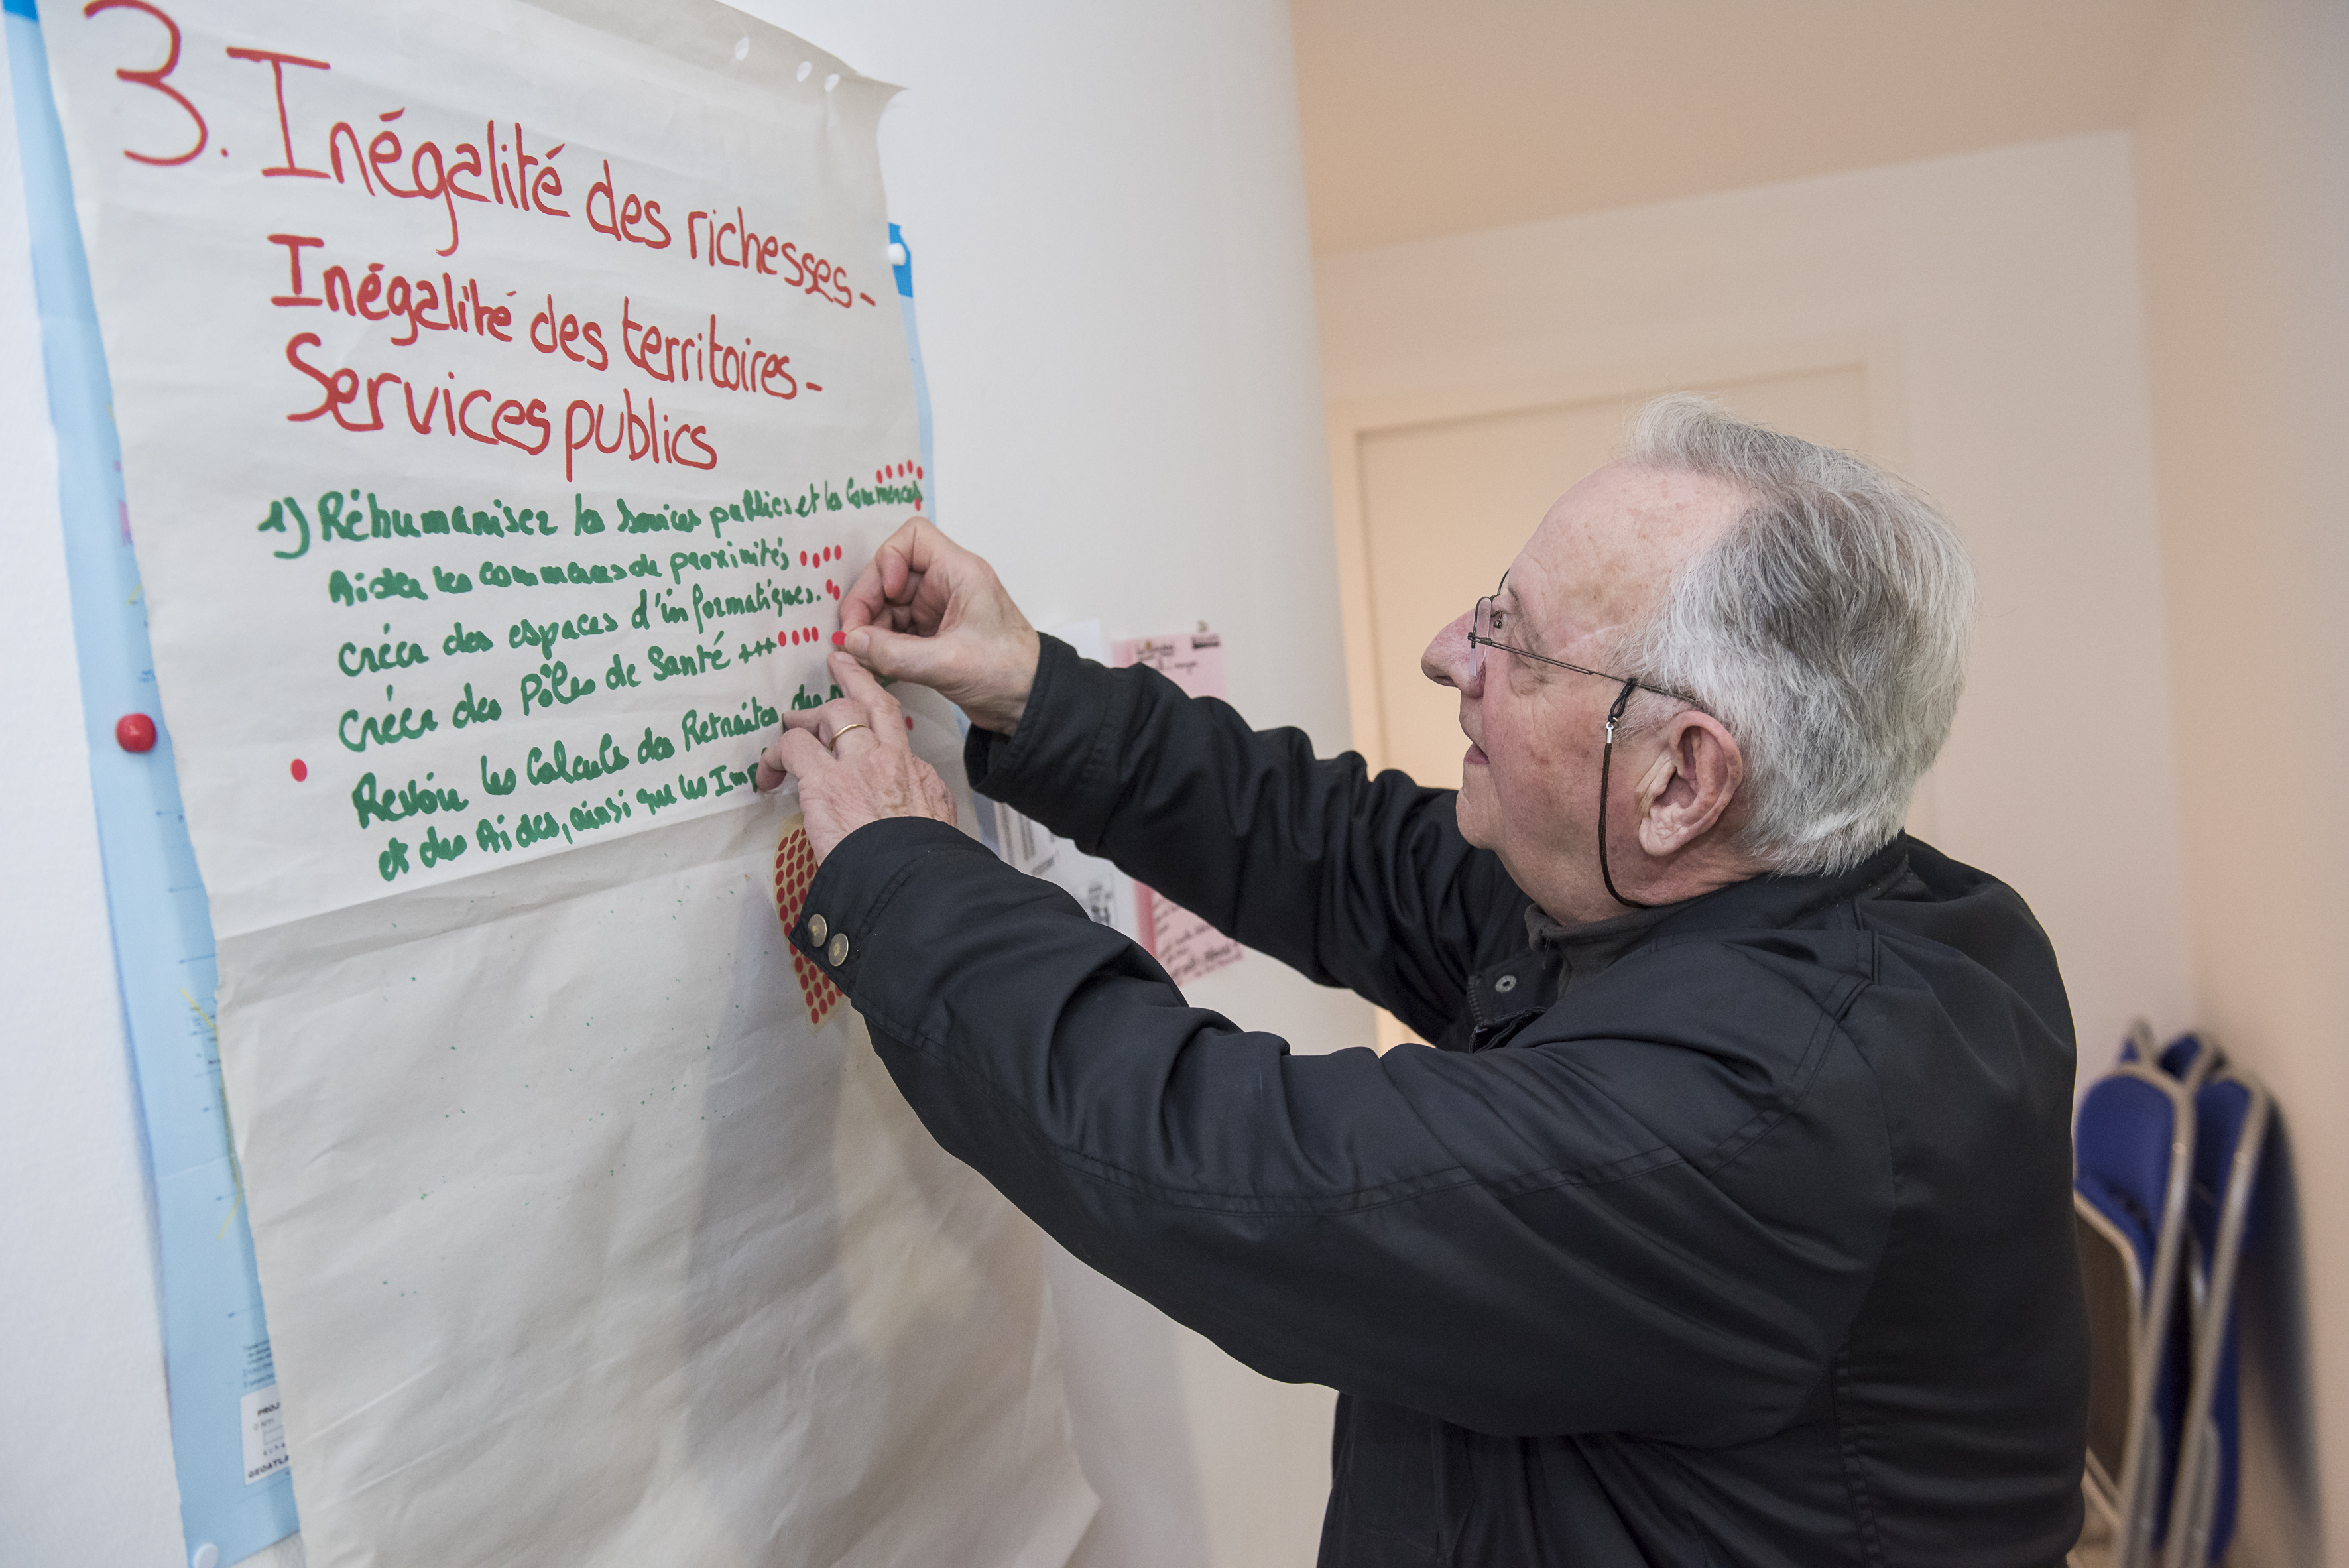 3. Inégalité des richesses -
Inégalité des territoires -
Services publics
1) Réhumaniser les Services publics et les Commerces
Aider les commerces de proximités
créer des espaces d'informatiques.
créer des Pôles de Santé +++
Revoir les Calculs des Retraites, des
et des Aides, ainsi que les Imp
PROJ
GEOATLA